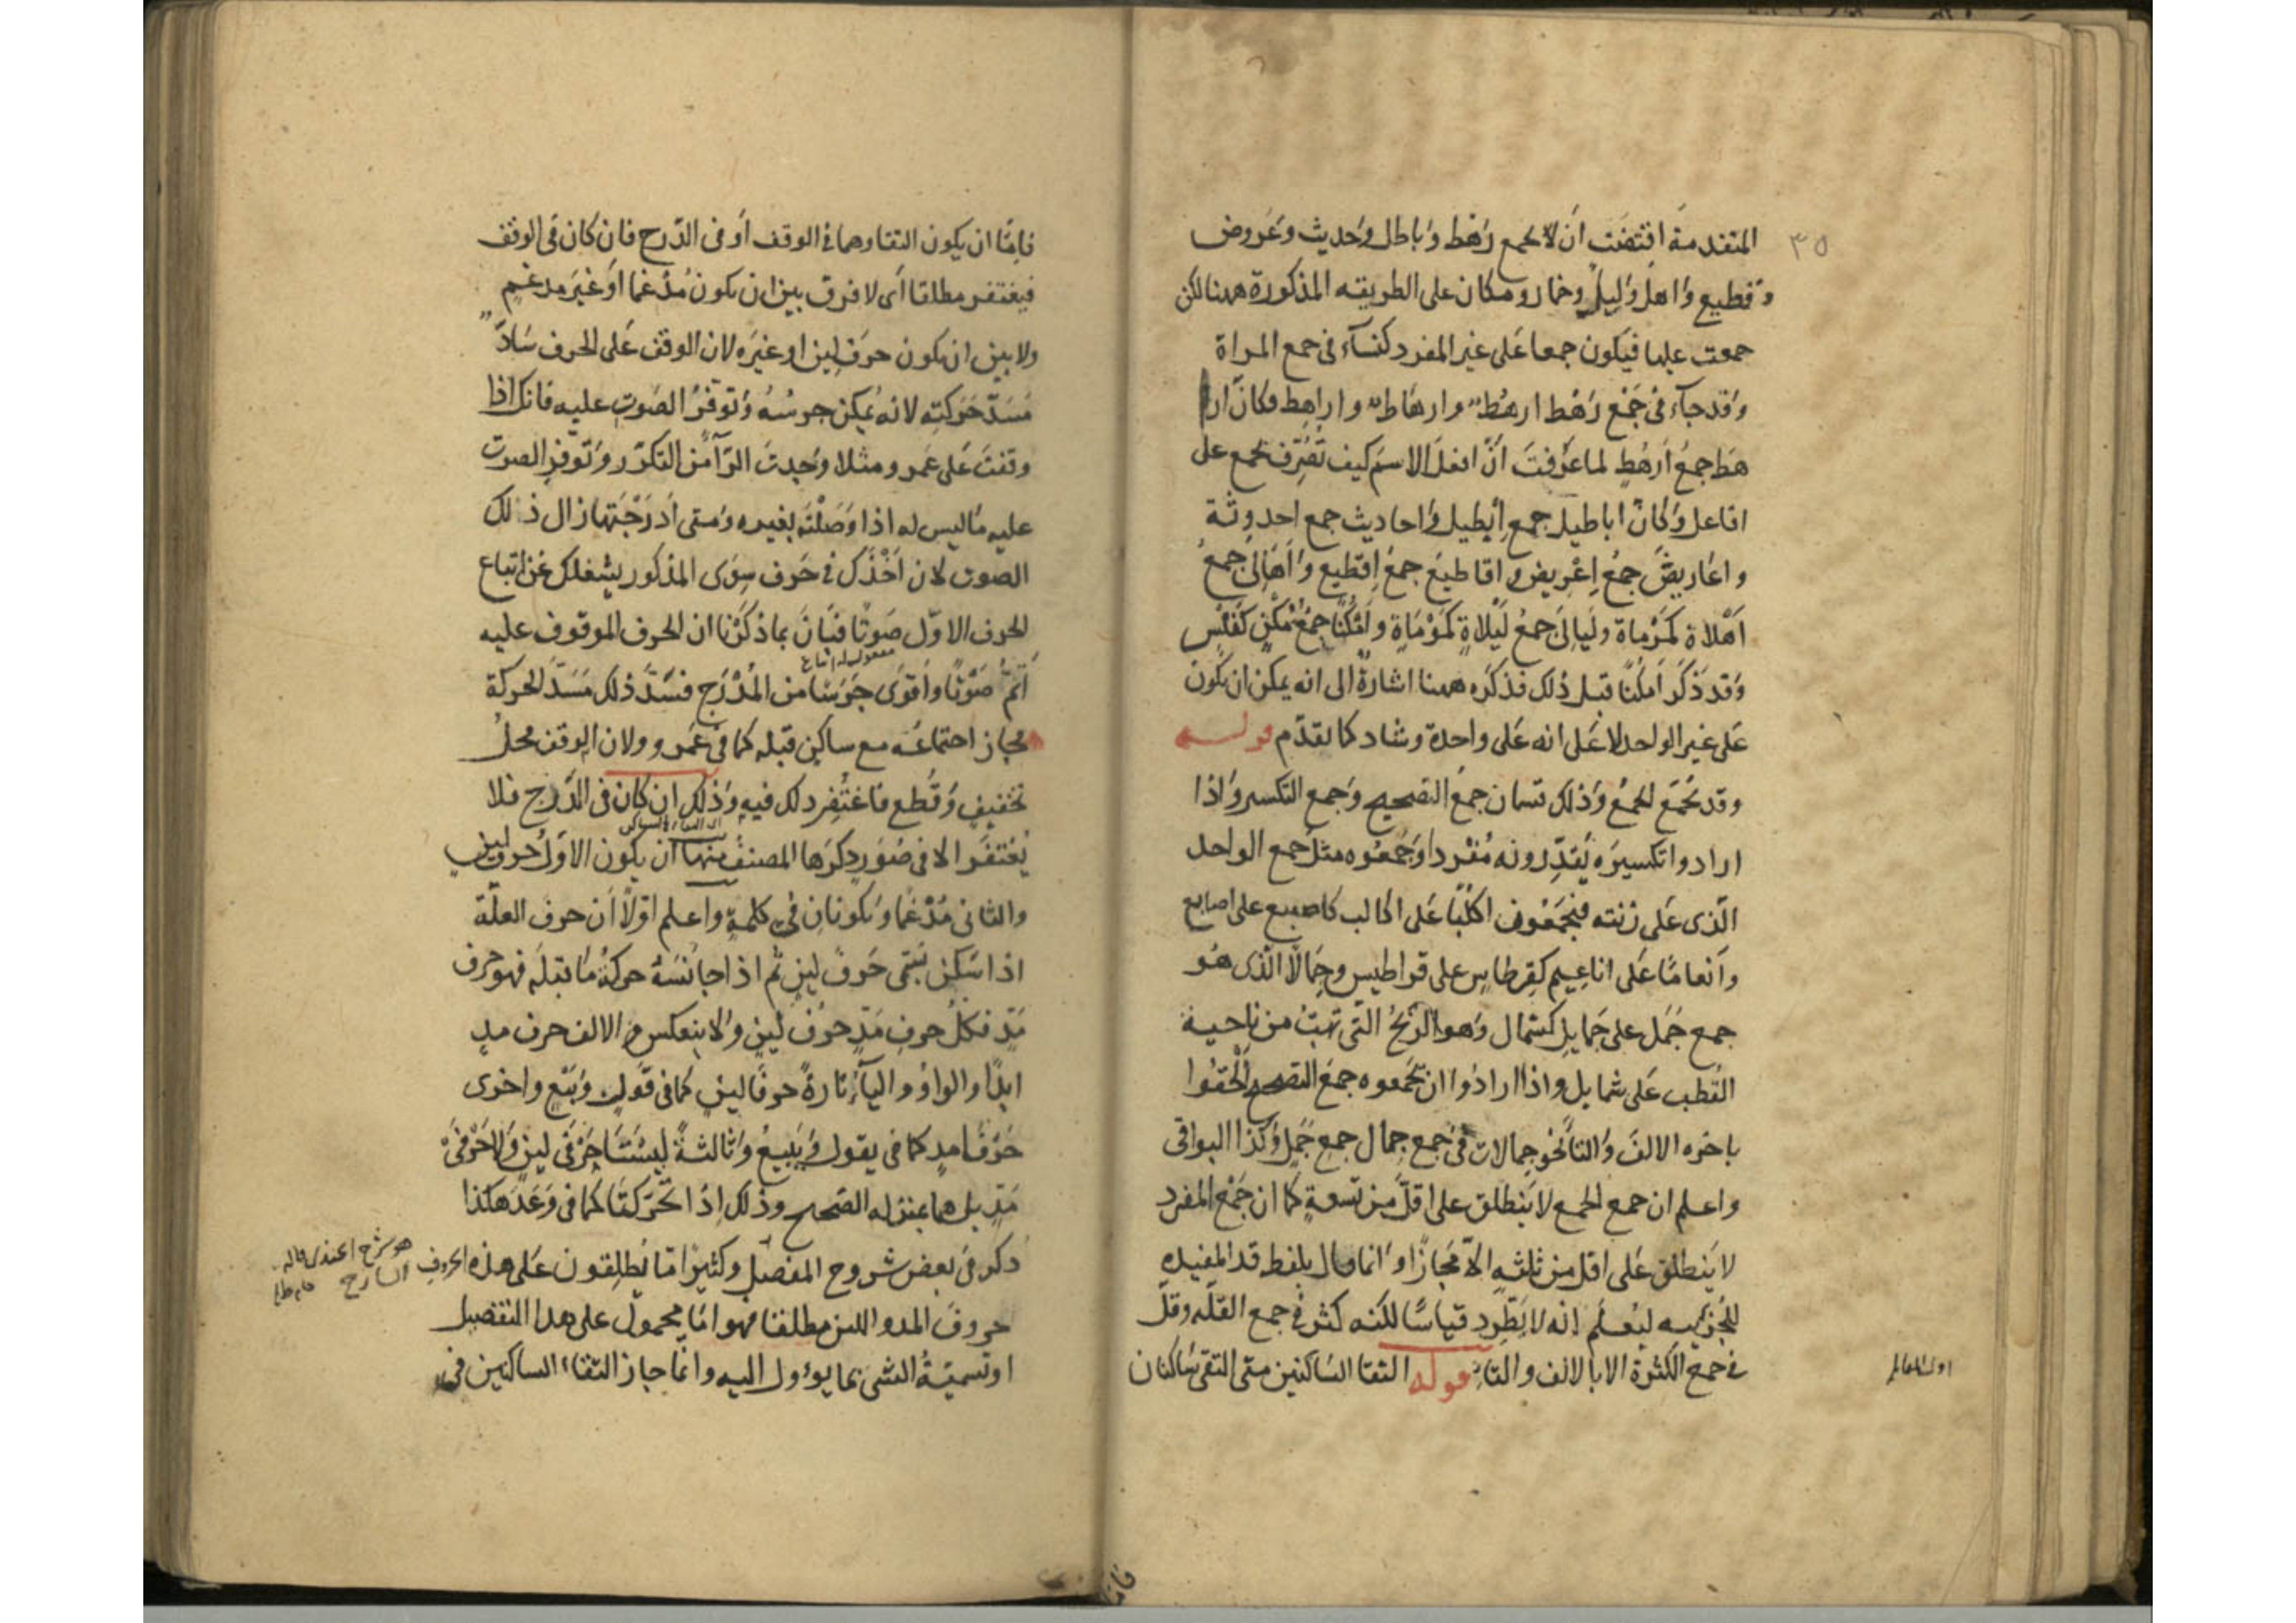 ٣٥
المتقدمة اقتضت ان لا يجمع رهط وباطل وحديث وعروض
وقطيع واهل وليل وحمار ومكان على الطريقه المذكورة ههنا لكن
جمعت عليها فيكون جمعا على غير المفرد كنسآء فى جمع المراة
وقد جآء فى جمع رهط ارهط وارهاط واراهط فكان ارا
هط جمع ارهط لما عرفت ان افعل الاسم كيف تصرف يجمع على
افاعل وكان اباطيل جمع ابطيل واحاديث جمع احدوثة
واعاريض جمع اعريض واقاطيع جمع اقطيع واهالى جمع
اهلاة كمرماة وليالى جمع ليلاة كموماة وامكنا جمع مكن كفلس
وقد ذكر امكنا قبل ذلك فذكره ههنا اشارة الى انه يمكن ان يكون
على غير الواحد لا على انه على واحدة وشاد كما تقدم قوله
وقد يجمع الجمع وذلك قسمان جمع التصحيح وجمع التكسير واذا
ارادوا تكسيره يقدرونه مفردا وجمعوه مثل جمع الواحد
الذى على زنته فيجمعون اكلبا على اكالب كاصبع على اصابع
وانعاما على اناعيم كقرطاس على قراطيس وجمالا الذى هو
جمع جمل على جمايل كشمال وهو الريح التى تهب من ناحية
القطب على شمايل واذا ارادوا ان يجمعوه جمع التصحيح الحقوا
باخره الالف والتا نحو جمالات فى جمع جمال جمع جمل وكذا البواقى
واعلم ان جمع الجمع لا ينطلق على اقل من تسعة كما ان جمع المفرد
لا ينطلق على اقل من ثلثه الا مجازا وانما قال بلفظ قد المفيده
للجزييه ليعلم انه لا يطرد قياسا لكنه كثر فى جمع القله وقل
فى جمع الكثرة الا بالالف والتا قوله التقا الساكنين متى التقى ساكنان
فاما ان يكون التقاوهما فى الوقف او فى الدرج فان كان فى الوقف
فيغتفر مطلقا اى لا فرق بين ان يكون مدغما او غير مدغم
ولا بين ان يكون حرف لين او غيره لان الوقف على الحرف سادّ
مسد حركته لانه يمكن جرسه وتوفر الصوت عليه فانك اذا
وقفت على عمرو مثلا وجدت الرآ من التكرر وتوفر الصوت
عليه ما ليس له اذا وصلته بغيره ومتى ادرجتها زال ذلك
الصوت لان اخذك فى حرف سوى المذكور يشغلك عن اتباع
الحرف الاول صوتا فبان بما ذكرنا ان الحرف الموقوف عليه
اتم صوتا واقوى جرسا من المدرج فسد ذلك مسد الحركة
فجاز اجتماعه مع ساكن قبله كما فى عمرو ولان الوقف محل
تخفيف وقطع فاغتفر ذلك فيه وذلك ان كان فى الدرج فلا
يغتفر الا فى صور ذكرها المصنف منها ان يكون الاول حرف لين
والثانى مدغما ويكونان فى كلمة واعلم اولا ان حرف العلة
اذا سكن يسمى حرف لين ثم اذا جانسه حركة ما قبله فهو حرف
مد فكل حرف مد حرف لين ولا ينعكس والالف حرف مد
ابدا والواو واليآء تارة حرفا لين كما فى قول وبيع واخرى
حرفا مد كما فى يقول ويبيع وثالثة ليستا حرفى لين ولا حرفى
مد بل هما بمنزله الصحيح وذلك اذا تحركتا كما فى وعد هكذا
ذكر فى بعض شروح المفصل وكثيرا ما يطلقون على هذه الحروف
حروف المد واللين مطلقا فهو اما محمول على هذا التفصيل
او تسمية الشى بما يوول اليه وانما جاز التقاء الساكنين فى